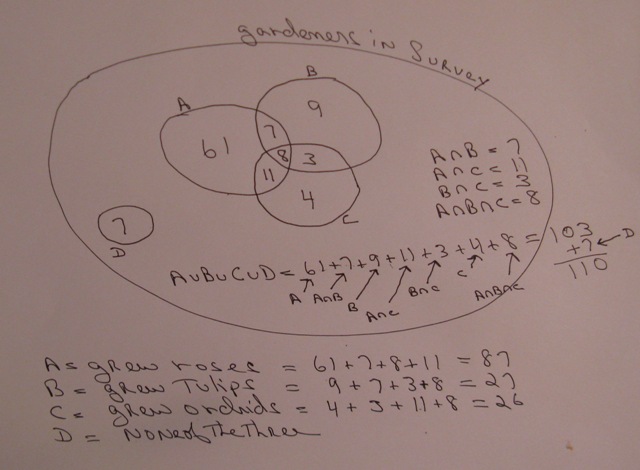 gardeners in Survey
B
A
9
7
61
8
3
11
4
C
7
D
A∩B = 7
A∩C = 11
B∩C = 3
A∩B∩C = 8
A∪B∪C∪D = 61+7+9+11+3+4+8 = 103
+7 ← D
110
A A∩B B A∩C B∩C C A∩B∩C
A = grew roses = 61+7+8+11 = 87
B = grew Tulips = 9+7+3+8 = 27
C = grew orchids = 4+3+11+8 = 26
D = None of The Three